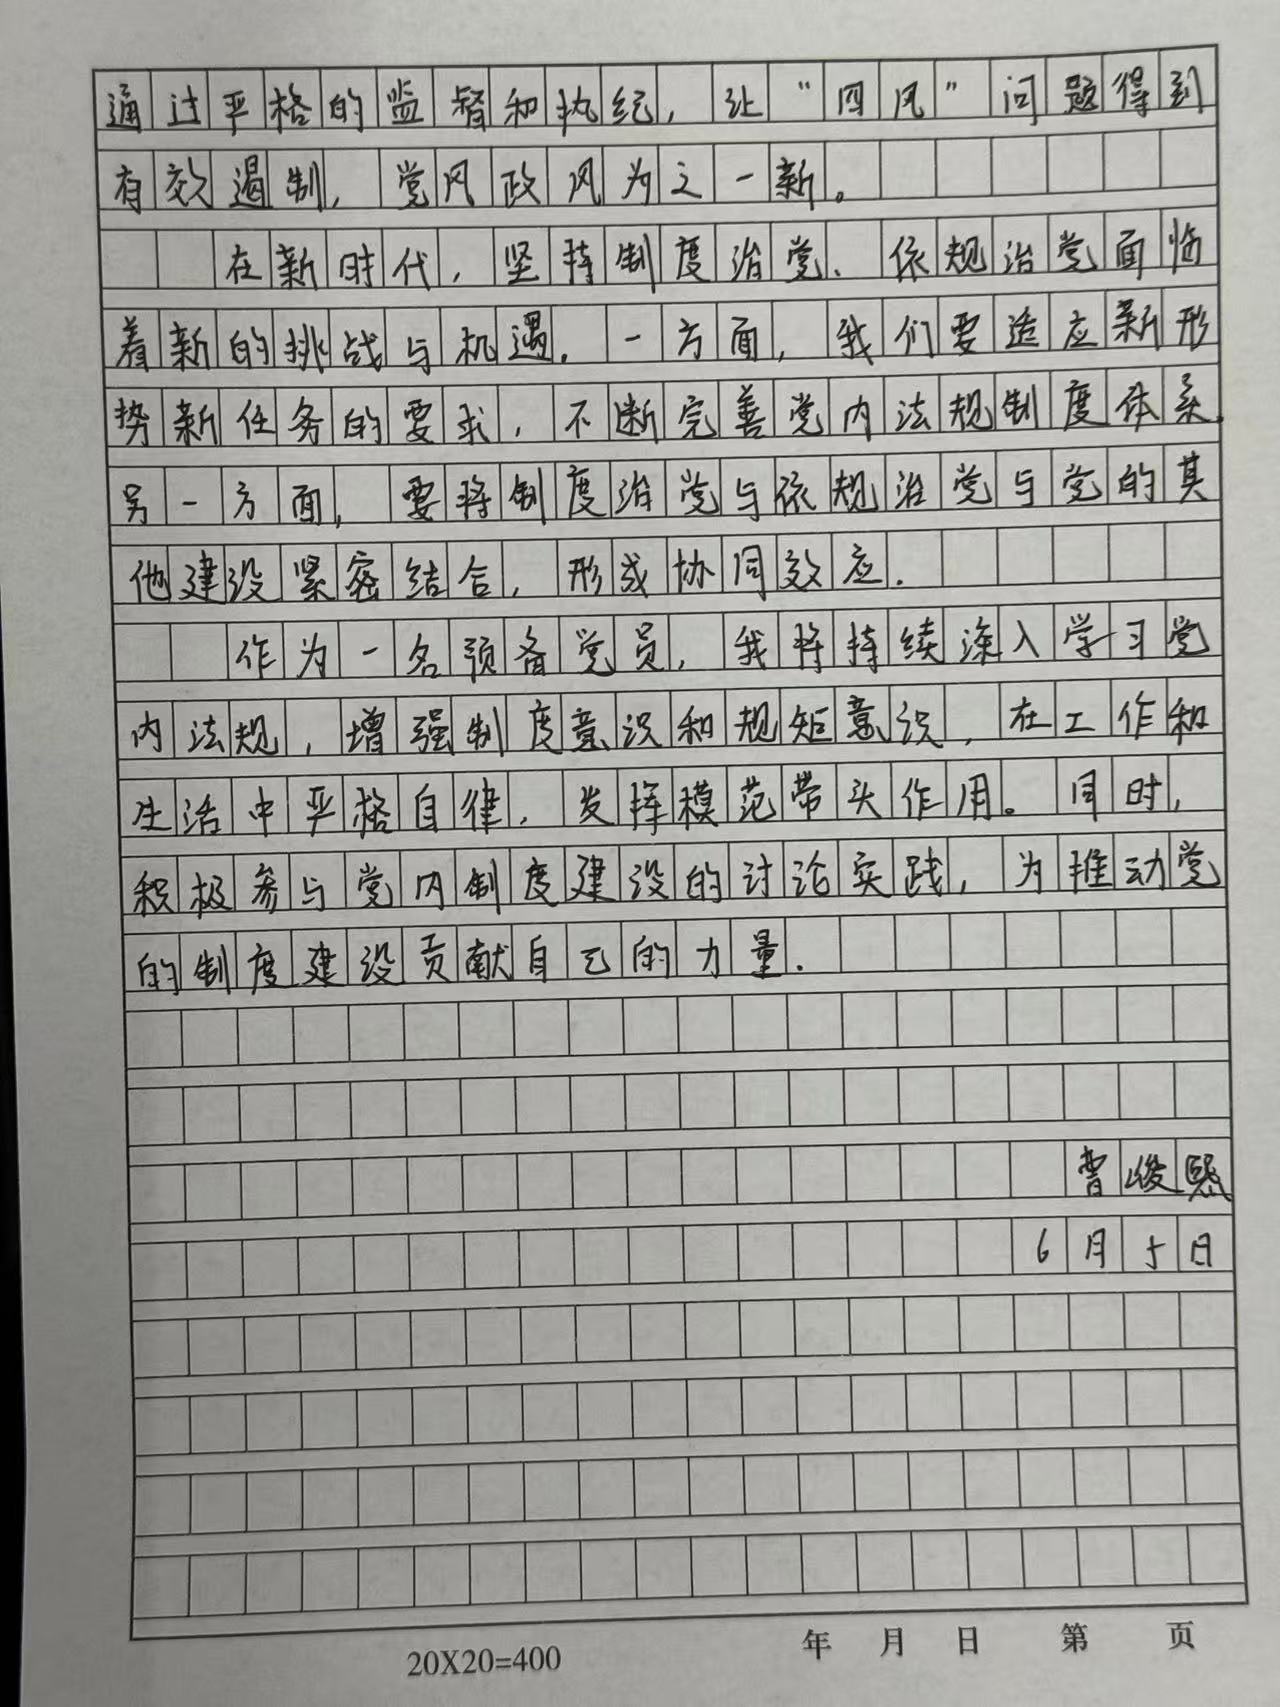 通过严格的监督和执纪，让“四风”问题得到
有效遏制，党风政风为之一新。
在新时代，坚持制度治党、依规治党面临
着新的挑战与机遇．一方面，我们要适应新形
势新任务的要求，不断完善党内法规制度体系．
另一方面，要将制度治党与依规治党与党的其
他建设紧密结合，形成协同效应．
作为一名预备党员，我将持续深入学习党
内法规，增强制度意识和规矩意识，在工作和
生活中严格自律，发挥模范带头作用。同时，
积极参与党内制度建设的讨论实践，为推动党
的制度建设贡献自己的力量．
曹峻熙
6月5日
20X20=400 年 月 日 第 页